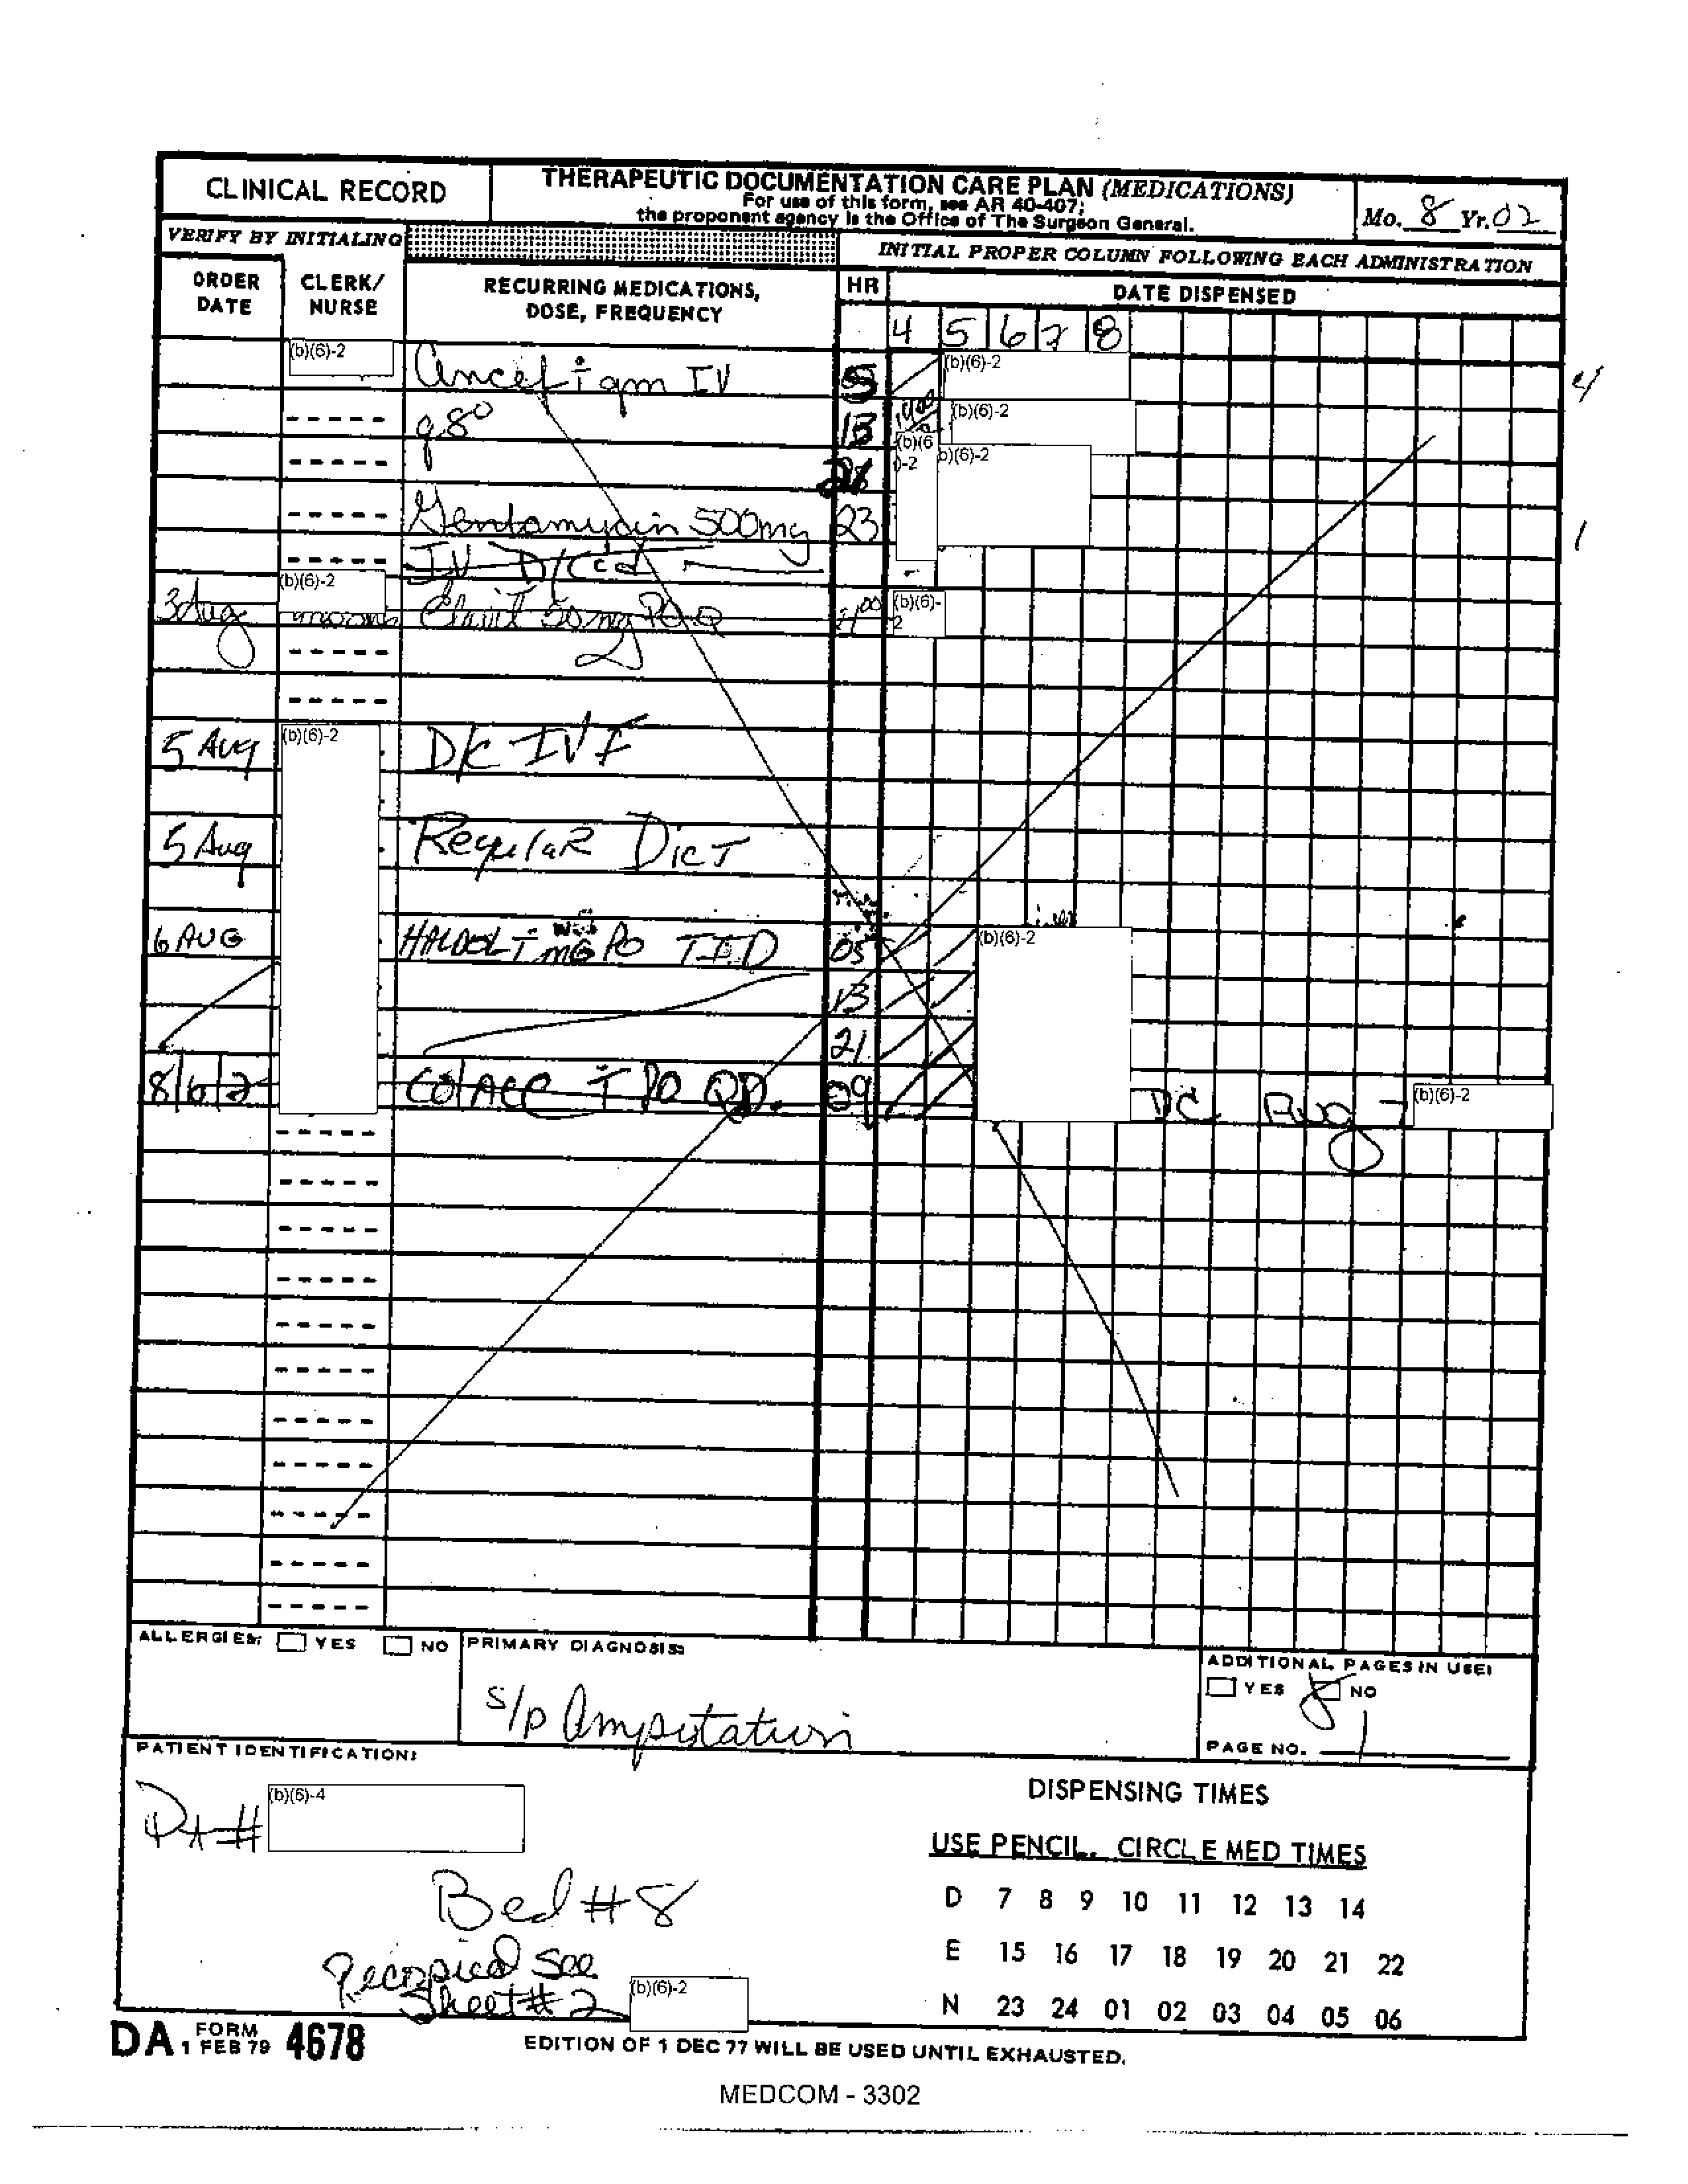 CLINICAL RECORD
THERAPEUTIC DOCUMENTATION CARE PLAN (MEDICATIONS)
For use of this form, see AR 40-407;
the proponent agency is the Office of The Surgeon General.
Mo. 8 Yr. 02
VERIFY BY INITIALING
INITIAL PROPER COLUMN FOLLOWING EACH ADMINISTRATION
ORDER DATE
CLERK/ NURSE
RECURRING MEDICATIONS, DOSE, FREQUENCY
HR
DATE DISPENSED
4 5 6 7 8
(b)(6)-2 Ancef i gm IV (b)(6)-2
q 8° 13 1400 (b)(6)-2
(b)(6)-2 (b)(6)-2
Gentamycin 500mg 23
IV D/C'd
(b)(6)-2
3 Aug Elavil 50mg PO Q 2100 (b)(6)-2
5 Aug (b)(6)-2 D/C IVF
5 Aug Regular Diet
6 AUG HALDOL i mG PO TID 05 (b)(6)-2
13
21
8/6/2 COlACE i PO QD. 09 DC Aug 7 (b)(6)-2
ALLERGIES: YES NO
PRIMARY DIAGNOSIS:
s/p Amputation
ADDITIONAL PAGES IN USE:
YES NO
PAGE NO. 1
PATIENT IDENTIFICATION:
(b)(6)-4
Bed # 8
Recopied See
Sheet # 2 (b)(6)-2
DISPENSING TIMES
USE PENCIL. CIRCLE MED TIMES
D 7 8 9 10 11 12 13 14
E 15 16 17 18 19 20 21 22
N 23 24 01 02 03 04 05 06
DA FORM 1 FEB 79 4678
EDITION OF 1 DEC 77 WILL BE USED UNTIL EXHAUSTED.
MEDCOM - 3302